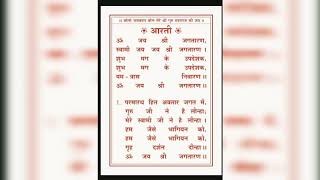 आरती
ॐ जय श्री जगतारण,
स्वामी जय जय श्री जगतारण ।
शुभ मग के उपदेशक,
शुभ मग के उपदेशक,
यम - त्रास निवारण ॥
ॐ जय श्री जगतारण ॥
1. परमारथ हित अवतार जगत में,
गुरु जी ने है लीन्हा ।
मेरे स्वामी जी ने है लीन्हा ।
हम जैसे भागियन को,
हम जैसे भागियन को,
गृह दर्शन दीन्हा ॥
ॐ जय श्री जगतारण ॥